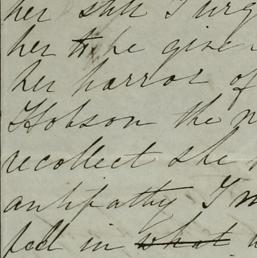 her still I urg
her to be give
her horror of
Hobson the n
recollect she
antipathy I m
fell in what